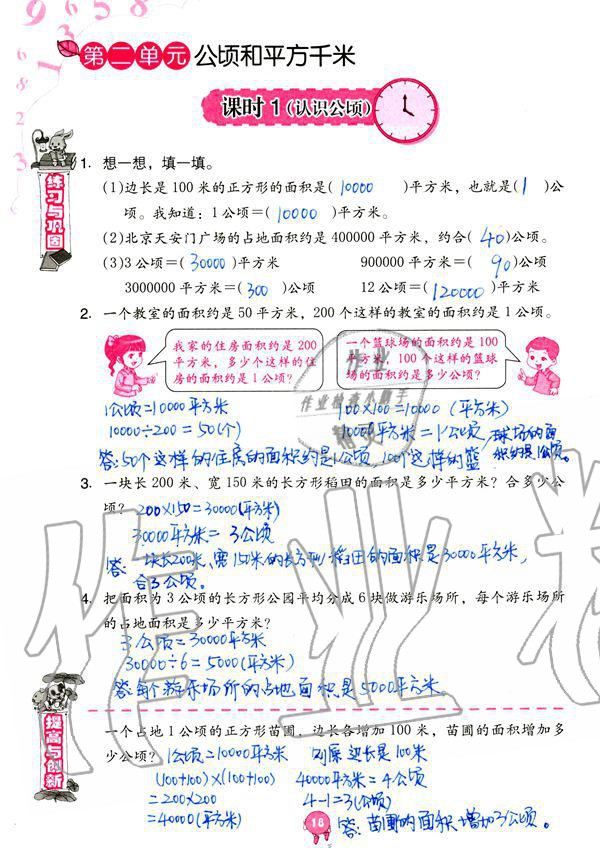 第二单元 公顷和平方千米
课时1(认识公顷)
练习与巩固
1. 想一想，填一填。
(1)边长是100米的正方形的面积是( 10000 )平方米，也就是( 1 )公
顷。我知道：1公顷=( 10000 )平方米。
(2)北京天安门广场的占地面积约是400000平方米，约合( 40 )公顷。
(3)3公顷=( 30000 )平方米 900000平方米=( 90 )公顷
3000000平方米=( 300 )公顷 12公顷=( 120000 )平方米
2. 一个教室的面积约是50平方米，200个这样的教室的面积约是1公顷。
我家的住房面积约是200
平方米，多少个这样的住
房的面积约是1公顷?
一个篮球场的面积约是100
平方米，100个这样的篮球
场的面积约是多少公顷?
1公顷=10000平方米
10000÷200=50(个)
答:50个这样的住房的面积约是1公顷,
100×100=10000(平方米)
10000平方米=1公顷
100个这样的篮球场的面积约是1公顷。
3. 一块长200米、宽150米的长方形稻田的面积是多少平方米? 合多少公
顷? 200×150=30000(平方米)
30000平方米=3公顷
答:一块长200米、宽150米的长方形稻田的面积是30000平方米,
合3公顷。
4. 把面积为3公顷的长方形公园平均分成6块做游乐场所，每个游乐场所
的占地面积是多少平方米?
3公顷=30000平方米
30000÷6=5000(平方米)
答:每个游乐场所的占地面积是5000平方米。
提高与创新
一个占地1公顷的正方形苗圃，边长各增加100米，苗圃的面积增加多
少公顷? 1公顷=10000平方米 则原边长是100米
(100+100)×(100+100) 40000平方米=4公顷
=200×200 4-1=3(公顷)
=40000(平方米) 答:苗圃的面积增加3公顷。
18
作业
作业检查小帮手